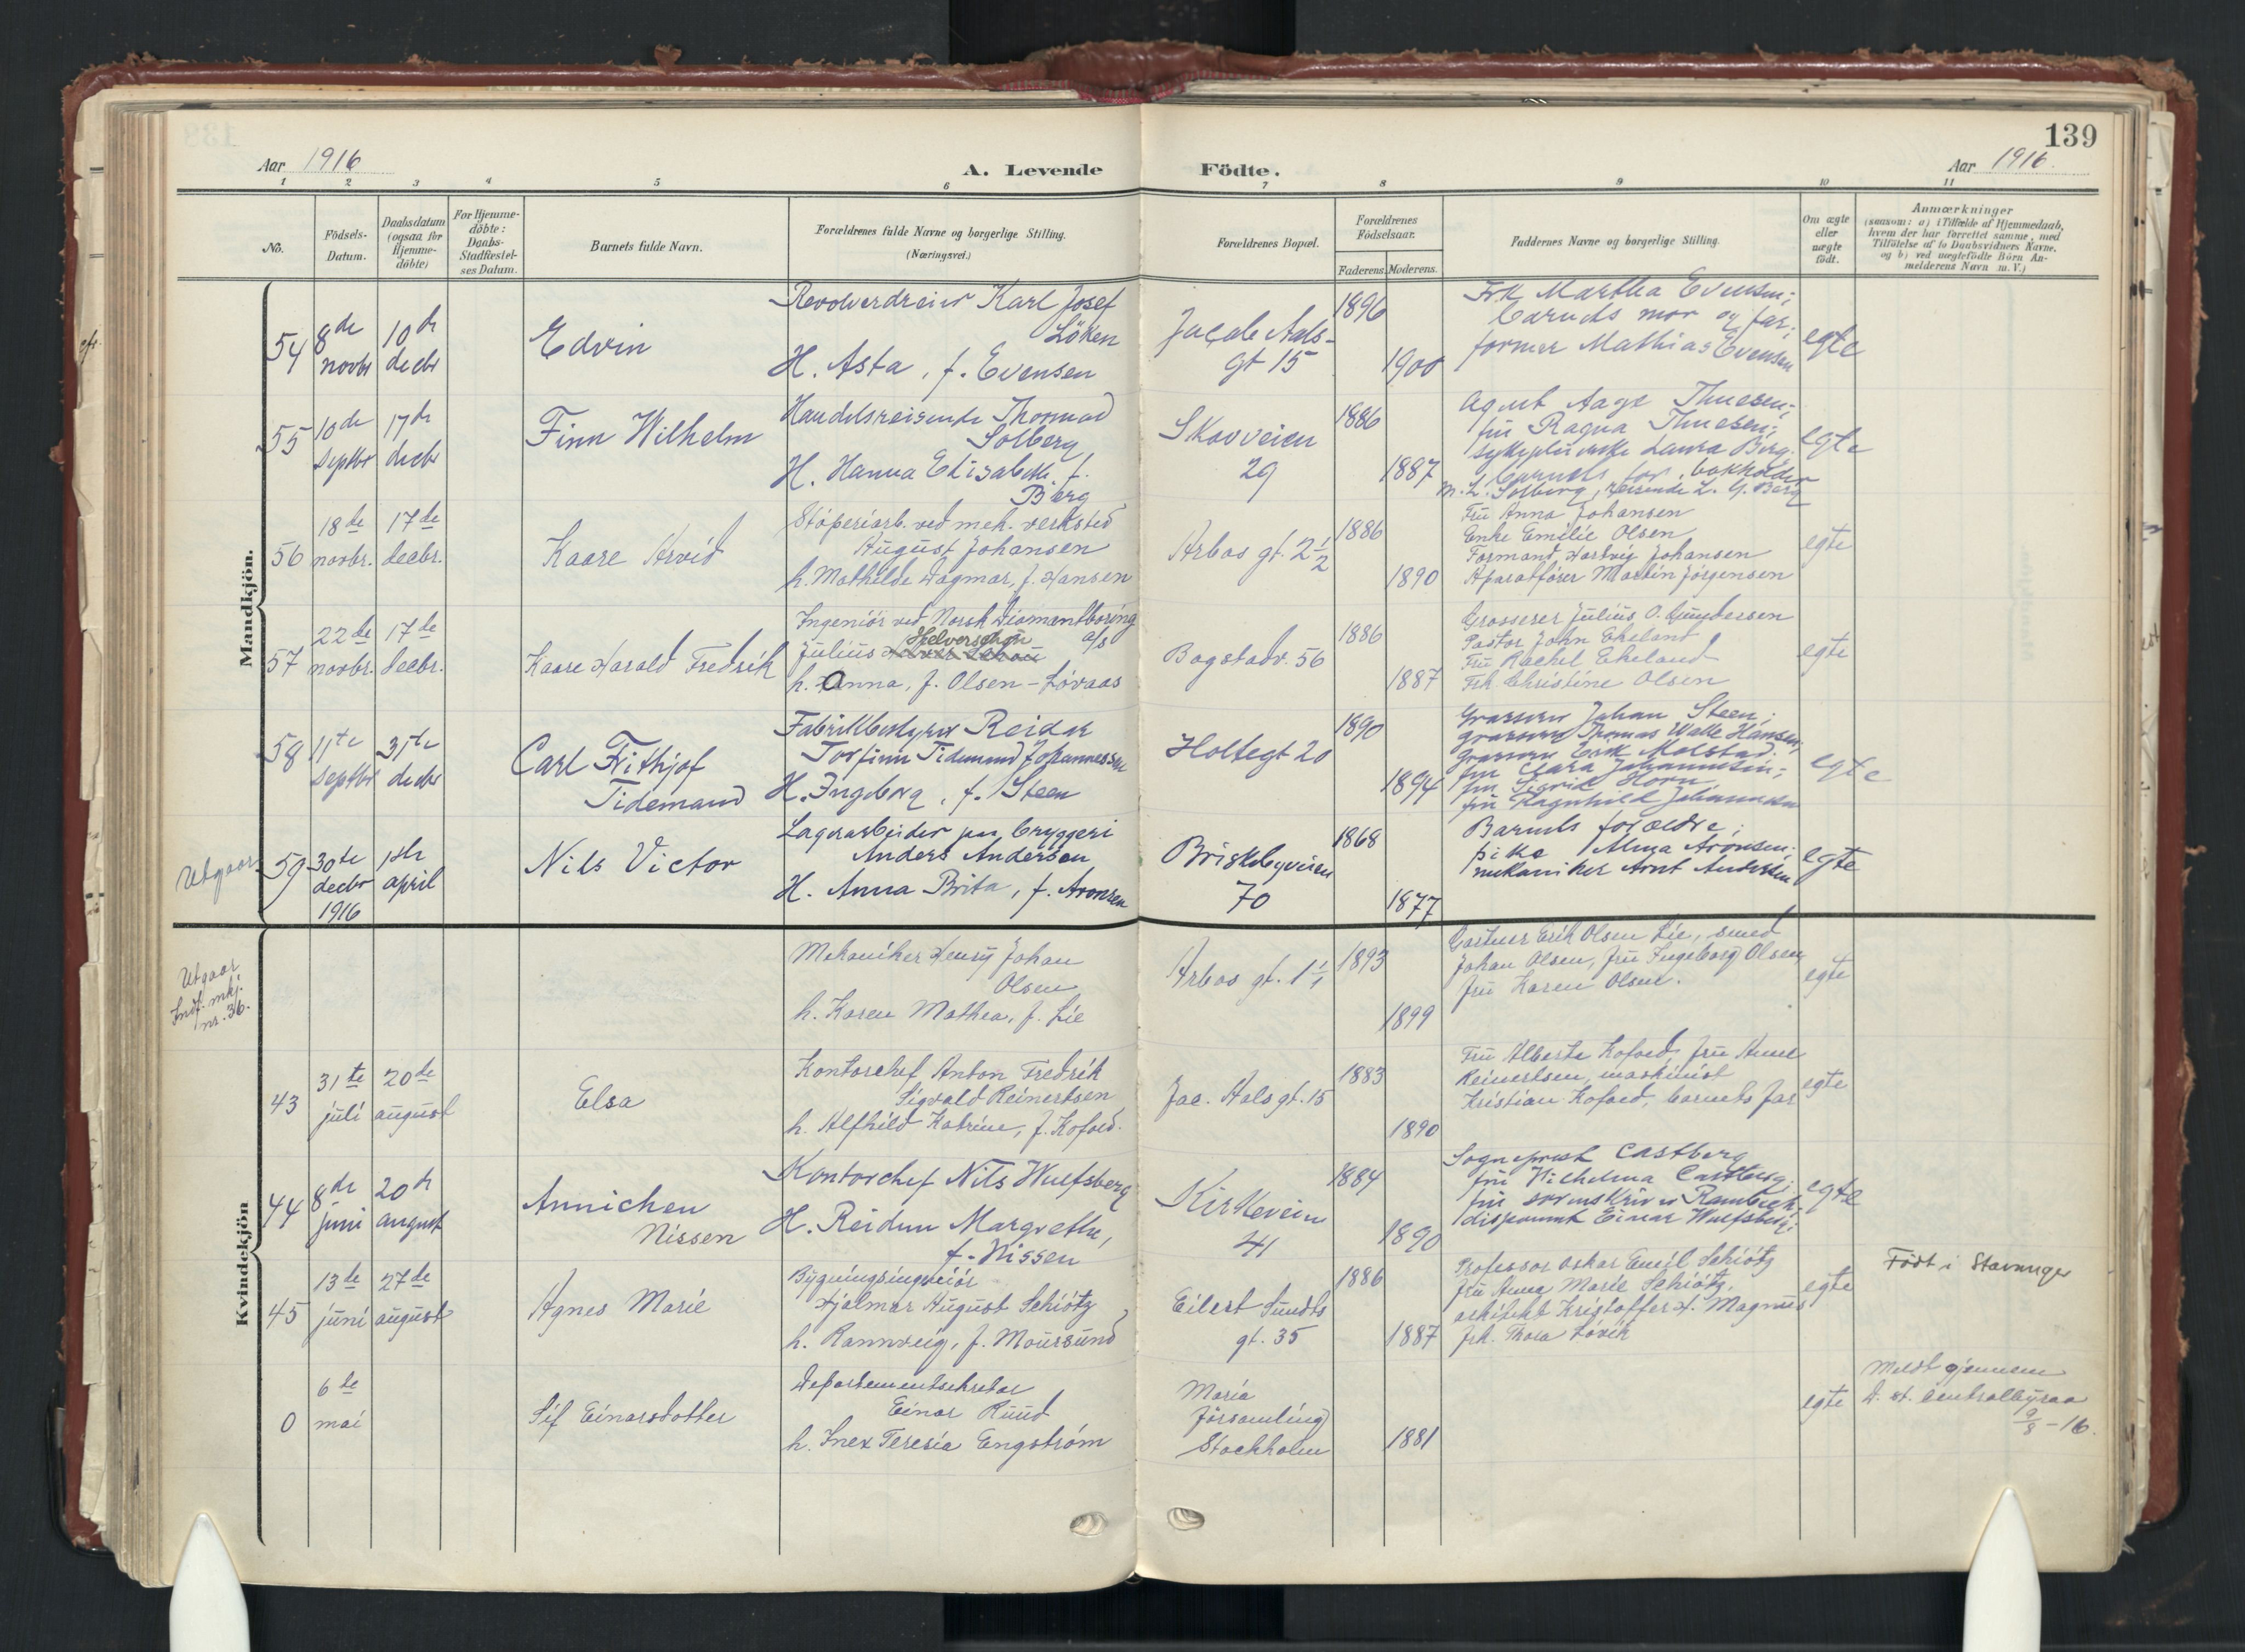 139
Aar 1916
A. Levende Födte.
Aar 1916
1 2 3 4 5 6 7 8 9 10 11
No.
Födsels-Datum.
Daabsdatum (ogsaa for Hjemme-döbte)
For Hjemme-döbte: Daabs-Stadfæstel-ses Datum.
Barnets fulde Navn.
Forældrenes fulde Navne og borgerlige Stilling.
(Næringsvei.)
Forældrenes Bopæl.
Forældrenes Födselsaar.
Faderens. Moderens.
Faddernes Navne og borgerlige Stilling.
Om ægte eller uægte födt.
Anmærkninger
(saasom: a) i Tilfælde af Hjemmedaab, hvem der har forrettet samme, med Tilföielse af to Daabsvidners Navne, og b) ved uægtefödte Börn Anmelderens Navn m. V.)
Mandkjön.
54 8de novbr 10de decbr
Edvin
Revolverdreier Karl Josef
Löken
H. Asta, f. Evensen
Jacob Aals-
gt 15
1896
1900
Frk Martha Evensen;
barnets mor og far;
former Mathias Evensen
egte
55 10de septbr 17de decbr
Finn Wilhelm
Handelsreisende Thormod
Solberg
H. Hanna Elisabeth, f.
Berg
Skovveien
29
1886
1887
Agent Aage Thuesen;
fru Ragna Thuesen;
sykepleierske Laura Berg.
barnets far, bokholder
M. L. Solberg, reisende L. G. Berg
egte
56 18de novbr. 17de decbr.
Kaare Arvid
Stöperiarb. ved mek. verksted
August Johansen
h. Mathilde Dagmar, f. Hansen
Arbos gt. 2 1/2
1886
1890
Fru Anna Johansen
Enke Emilie Olsen
Formand Hartvig Johansen
Aparatförer Martin Jörgensen
egte
57 22de novbr. 17de decbr.
Kaare Harald Fredrik
Ingeniör ved Norsk Diamantboring
a/s
Julius Helverschou
h. Anna, f. Olsen-Lövaas
Bogstadv. 56
1886
1887
Grosserer Julius O. Gundersen
Pastor John Ekeland
Fru Rachel Ekeland
Frk. Christine Olsen
egte
58 11te septbr 31te decbr
Carl Frithjof
Tidemand
Fabrikbestyrer Reidar
Torfinn Tidemand Johannessen
H. Ingeborg, f. Steen
Holtegt 20
1890
1894
Grosserer Johan Steen;
grosserer Thomas Walle Hansen;
grosserer Erik Molstad.
fru Clara Johannessen;
fru Sigrid Horn
fru Ragnhild Johannessen
egte
Utgaar
59 30te decbr 1916 1ste april
Nils Victor
Lagerarbeider paa bryggeri
Anders Andersen
H. Anna Brita, f. Aronsen
Briskebyveien
70
1868
1877
Barnets forældre;
pike Alma Aronsen.
mekaniker Arnt Andersen
egte
Kvindekjön
Utgaar
Indf. mkj.
nr. 36.
Mekaniker Henry Johan
Olsen
h. Karen Mathea, f. Lie
Arbos gt. 1 1/1
1893
1899
Gartner Erik Olsen Lie, smed
Johan Olsen, fru Ingeborg Olsen
fru Karen Olsen.
egte
43 31te juli 20de august
Elsa
Kontorchef Anton Fredrik
Sigvald Reinertsen
h. Alfhild Katrine, f. Kofoed.
Jac. Aals gt. 15
1883
1890
Fru Alberta Kofoed, fru Anne
Reinertsen, maskinist
Kristian Kofoed, barnets far
egte
44 8de juni 20de august
Annichen
Nissen
Kontorchef Nils Wulfsberg
H. Reidun Margrethe,
f. Nissen
Kirkeveien
41
1884
1890
Sogneprest Castberg
fru Wilhelma Castberg;
fru sorenskriver Rambech;
disponent Einar Wulfsberg;
egte
45 13de juni 27de august
Agnes Marie
Bygningsingeniör
Hjalmar August Schiötz
h. Rannveig, f. Moursund
Eilert Sundts
gt. 35
1886
1887
Professor Oskar Emil Schiötz
fru Anna Marie Schiötz,
arkitekt Kristoffer H. Magnus
frk. Thora Lövik
egte
Födt i Stavanger
0 6te mai
Sif Einarsdotter
Departementsekretær
Einar Ruud
h. Inez Teresia Engström
Maria
församling
Stockholm
1881
egte
Meldt gjennem
d. st. Centralbyraa
9/8-16.